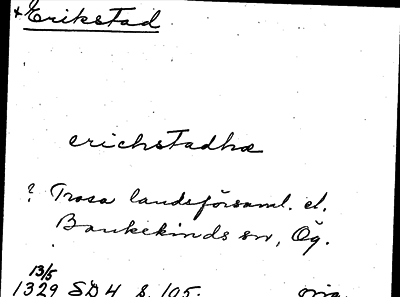 +Erikstad
erichstadhæ
? Trosa landsförsaml. el.
Bankekinds sn, Ög.
13/5
1329 SD 4 s. 105. orig.